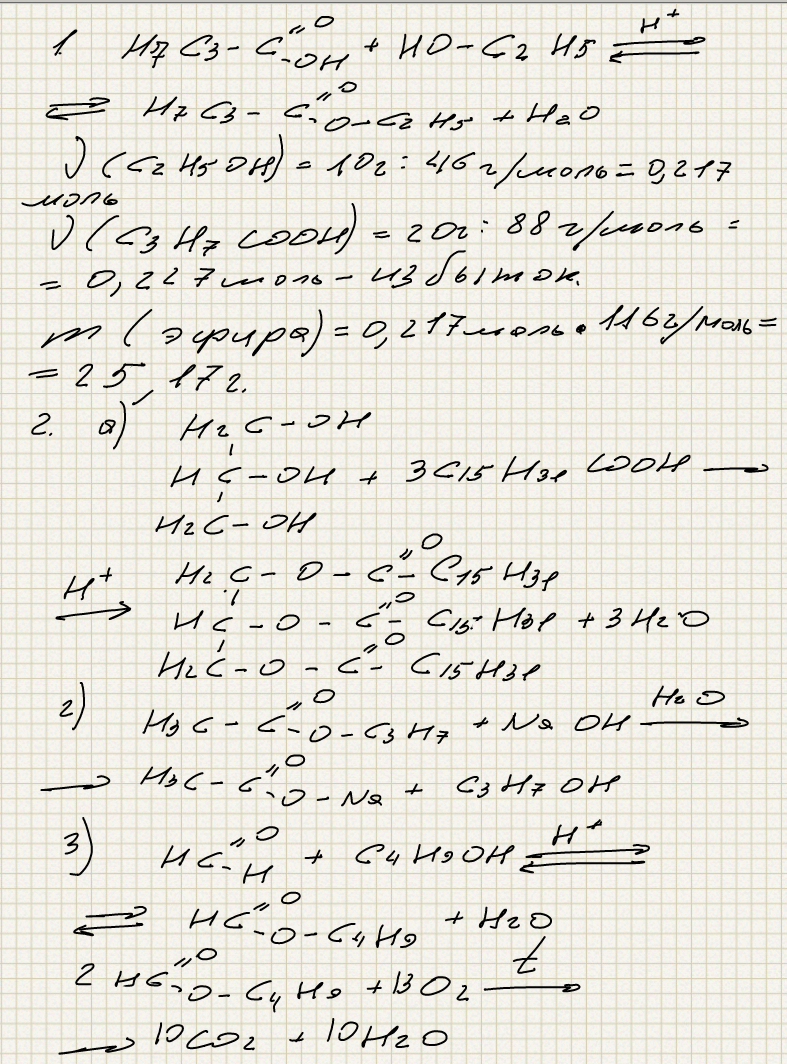 1. H7C3-C=O-OH + HO-C2H5 ⇌ H+
⇌ H7C3-C=O-O-C2H5 + H2O
ν(C2H5OH) = 10г : 46 г/моль = 0,217
моль
ν(C3H7COOH) = 20г : 88 г/моль =
= 0,227 моль - избыток.
m(эфира) = 0,217 моль • 116 г/моль =
= 25,17 г.
2. а) H2C-OH
HC-OH + 3C15H31COOH →
H2C-OH
H+ → H2C-O-C=O-C15H31
HC-O-C=O-C15H31 + 3H2O
H2C-O-C=O-C15H31
2) H3C-C=O-O-C3H7 + NaOH → H2O
→ H3C-C=O-O-Na + C3H7OH
3) HC=O-H + C4H9OH ⇌ H+
⇌ HC=O-O-C4H9 + H2O
2HC=O-O-C4H9 + 13O2 → t
→ 10CO2 + 10H2O